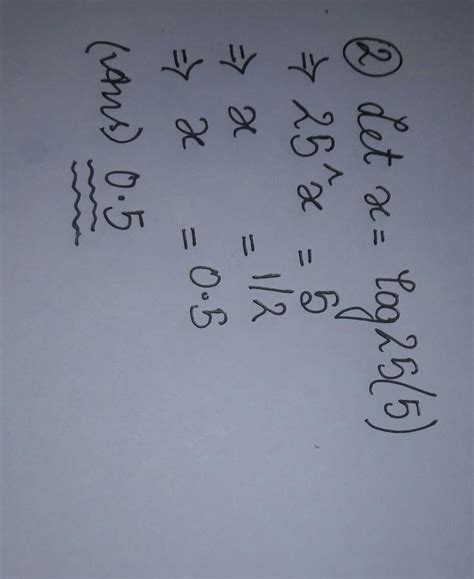 ② Let x = log25(5)
⇒ 25^x = 5
⇒ x = 1/2
⇒ x = 0.5
(Ans) 0.5